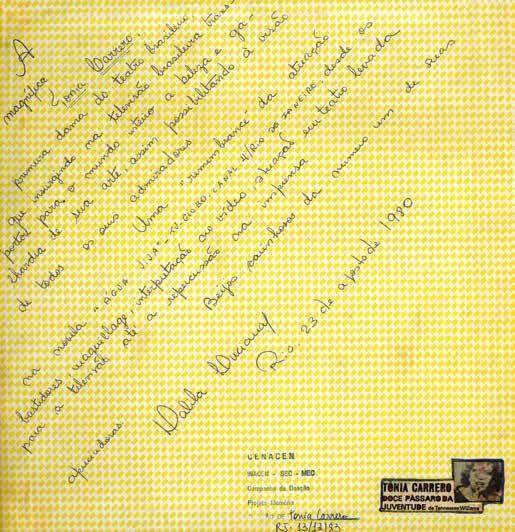 A
magnífica Tônia Carrero,
primeira dama do teatro brasileiro,
que insurgindo na televisão brasileira trans-
portou para o mundo inteiro a beleza e ga-
lhardia de sua arte, assim possibilitando à visão
de todos os seus admiradores.
Uma "remembrance" da atuação
na novela "ÁGUA VIVA" - TV. GLOBO, CANAL 4/RIO DE JANEIRO desde os
bastidores, maquillage, interpretação ao vídeo, atuação em teatro levada
para a televisão até a repercussão na imprensa.
Beijos carinhosos da número um de suas
apreciadoras.
Dalila
Rio, 23 de agosto de 1980
CENACEN
INACEN - SEC - MEC
Campanha de Doação
Projeto Memória
Tônia Carrero
RJ. 13/12/83
TÔNIA CARRERO
DOCE PÁSSARO DA
JUVENTUDE de Tennessee Williams